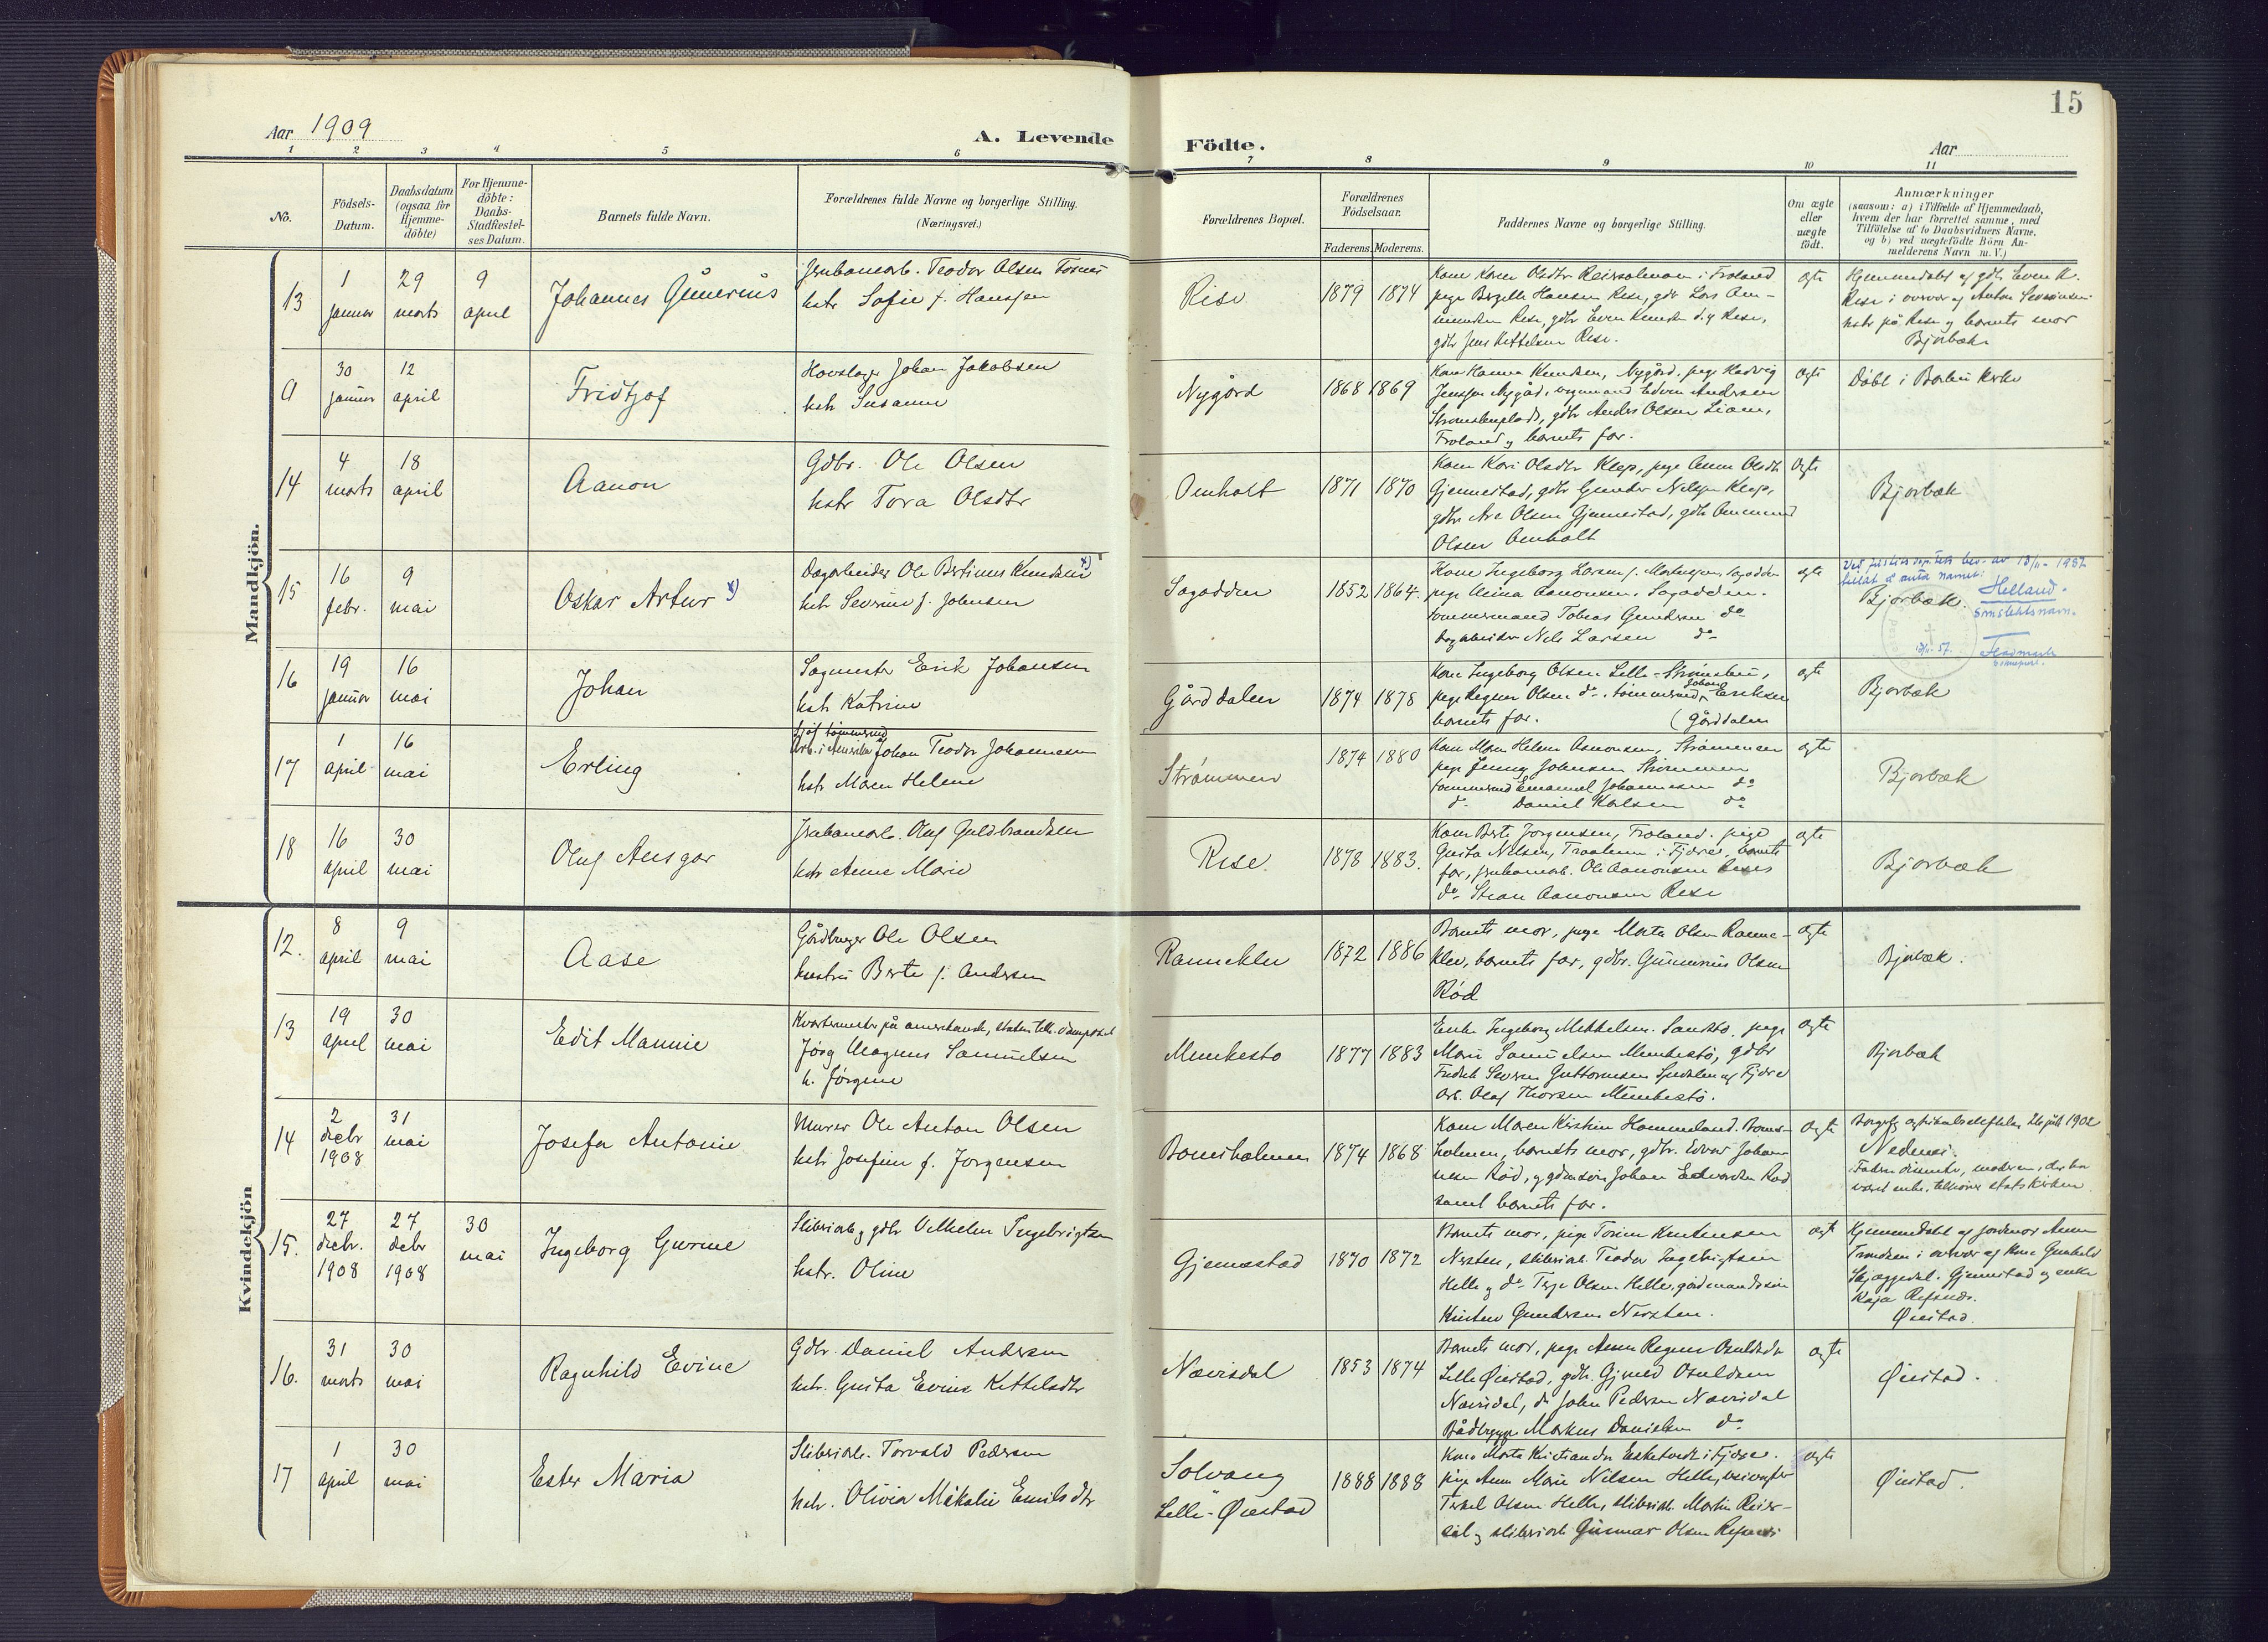 15
Aar 1909
A. Levende
Födte.
Aar
1 2 3 4 5 6 7 8 9 10 11
No.
Födsels-
Datum.
Daabsdatum
(ogsaa for
Hjemme-
döbte)
For Hjemme-
döbte:
Daabs-
Stadfæstel-
ses Datum.
Barnets fulde Navn.
Forældrenes fulde Navne og borgerlige Stilling.
(Næringsvei.)
Forældrenes Bopæl.
Forældrenes
Födselsaar.
Faderens. Moderens.
Faddernes Navne og borgerlige Stilling.
Om ægte
eller
uægte
födt.
Anmærkninger
(saasom: a) i Tilfælde af Hjemmedaab,
hvem der har forrettet samme, med
Tilföielse af to Daabsvidners Navne,
og b) ved uægtefödte Börn An-
melderens Navn m. V.)
Mandkjön.
13
1
januar
29
marts
9
april
Johannes Gunerius
Jernbanearb. Teodor Olsen
hstr Sofie f. Hansen
Rise
1879 1874
Rise, gdbr Lars
gdbr Jens Kittelsen Rise.
ægte
Hjemmedøbt af gdbr Even K.
Rise i overvær af Anton
hstr på Rise og barnets mor
Bjorbæk
9
30
januar
12
april
Fridtjof
Hovslager Johan Jakobsen
hstr Susanne
Nygård
1868 1869
Kone Hanna Knudsen, Nygård, pige Hedvig
Jensen Nygård, Edvin Andersen
gdbr Anders Olsen
Froland og barnets far.
ægte
Døbt i Barbu kirke
14
4
marts
18
april
Aanon
Gdbr. Ole Olsen
hstr Tora Olsdtr
Omholt
1871 1870
Kone Kari Olsdtr Klep, pige Anne Olsdtr
Gjennestad, gdbr Gunder Nilsen Klep,
gdbr Are Olsen Gjennestad, gdbr Ommund
Olsen Omholt
ægte
Bjorbæk
15
16
febr.
9
mai
Oskar Artur x)
Dagarbeider Ole Bertinus Knudsen x)
hstr Severine f. Johnsen
Sagodden
1852 1864.
Kone Ingeborg Larsen f. Mortensen, Sagodden
pige Anna Aanonsen, Sagodden.
tømmermand Tobias Gundersen do
Dagarbeider Nils Larsen do
ægte
Ved justisdep.tets bev. av 13/11-1957
tillatt å anta navnet:
Helland.
som slektsnavn.
Bjorbæk.
16
19
januar
16
mai
Johan
Sagmester Erik Johansen
hstr Katrine
Gårddalen
1874 1878
Kone Ingeborg Olsen Lille-Strømsbu,
pige Regine Olsen do, tømmermd Johan Eriksen
barnets far. (Gårddalen
ægte
Bjorbæk
17
1
april
16
mai
Erling
Arb. i Amerika Johan Teodor Johannesen
hstr Maren Helene
Strømmen
1874 1880
Kone Maren Helene Aanonsen, Strømmen
pige Jenny Johnsen Strømmen
tømmermd Emanuel Johannesen do
do Daniel Karlsen do
ægte
Bjorbæk
18
16
april
30
mai
Oluf Ansgar
Jernbanearb. Oluf Guldbrandsen
hstr Anne Marie
Rise
1878 1883.
Kone Berte Jørgensen, Froland, pige
Gusta Nilsen, i Fjære, barnets
far, jernbanearb. Ole Aanonsen
do Aanonsen Rise
ægte
Bjorbæk
Kvindekjön
12.
8
april
9
mai
Aase
Gårdbruger Ole Olsen
hustru Berte f. Andersen
Rannekleiv
1872 1886
Barnets mor, pige Marta Olsen Ranne-
klev, barnets far, gdbr. Gunerius Olsen
Rød
ægte
Bjorbæk.
13
19
april
30
mai
Edit Mannie
Kvartermester på amerikansk
Jörg Magnus Samuelsen
h. Jørgine
Munkestø
1877 1883
Enke Ingeborg Mikkelsen, Sandstø, pige
Marie Samuelsen Munkestø, gdbr
Fredrik Severin Guttormsen Fjære
arb. Olaf Thorsen Munkestø.
ægte
Bjorbæk
14
2
decbr
1908
31
mai
Josefa Antonie
Murer Ole Anton Olsen
hstr Josefine f. Jørgensen
Bomsholmen
1874 1868
Kone Maren Kirstine Hammeland, Boms-
holmen, barnets mor, gdbr. Edvar Johan-
nesen Rød, og gdmsøn Johan Edvardsen Rød
samt barnets far.
ægte
26 juli 1902
Nedenes.
Faderen dissenter, moderen, der har
været enke, tilhører statskirken
15.
27
decbr.
1908
27
decbr
1908
30
mai
Ingeborg Gurine
Sliberiarb. og gdbr Vilhelm Ingebrigtsen
hstr. Oline
Gjennestad
1870 1872
Barnets mor, pige Torine Knudsen
sliberiarb. Teodor Ingebrigtsen
Helle og do Terje Olsen Helle, gårdmandssøn
Kristen Gundersen
ægte
Hjemmedøbt af jordmor Anne
i overvær af kone Gunhild
Gjennestad og enke
Kaja Refsnes.
Øiestad.
16.
31
marts
30
mai
Ragnhild Evine
Gdbr. Daniel Andersen
hstr. Gusta Evine Kittelsdtr
Næversdal
1853 1874
Barnets mor, pige Anne Regine Osuldsdtr
Lille Øiestad, gdbr. Osuldsen
Næversdal, do John Pedersen Næversdal
Bådbygger Markus Danielsen do
ægte
Øiestad.
17
1
april
30
mai
Ester Maria
Sliberiarb. Torvald Pedersen
hstr. Olivia Mikalie Emilsdtr
Solvang
Lille-Øiestad
1888 1888
Kone Marta Kristiansen i Fjære.
pige Anne Marie Nilsen Helle,
Terkel Olsen Helle, sliberiarb. Martin Reier-
søl og sliberiarb Gunnar Olsen
ægte
Øiestad.